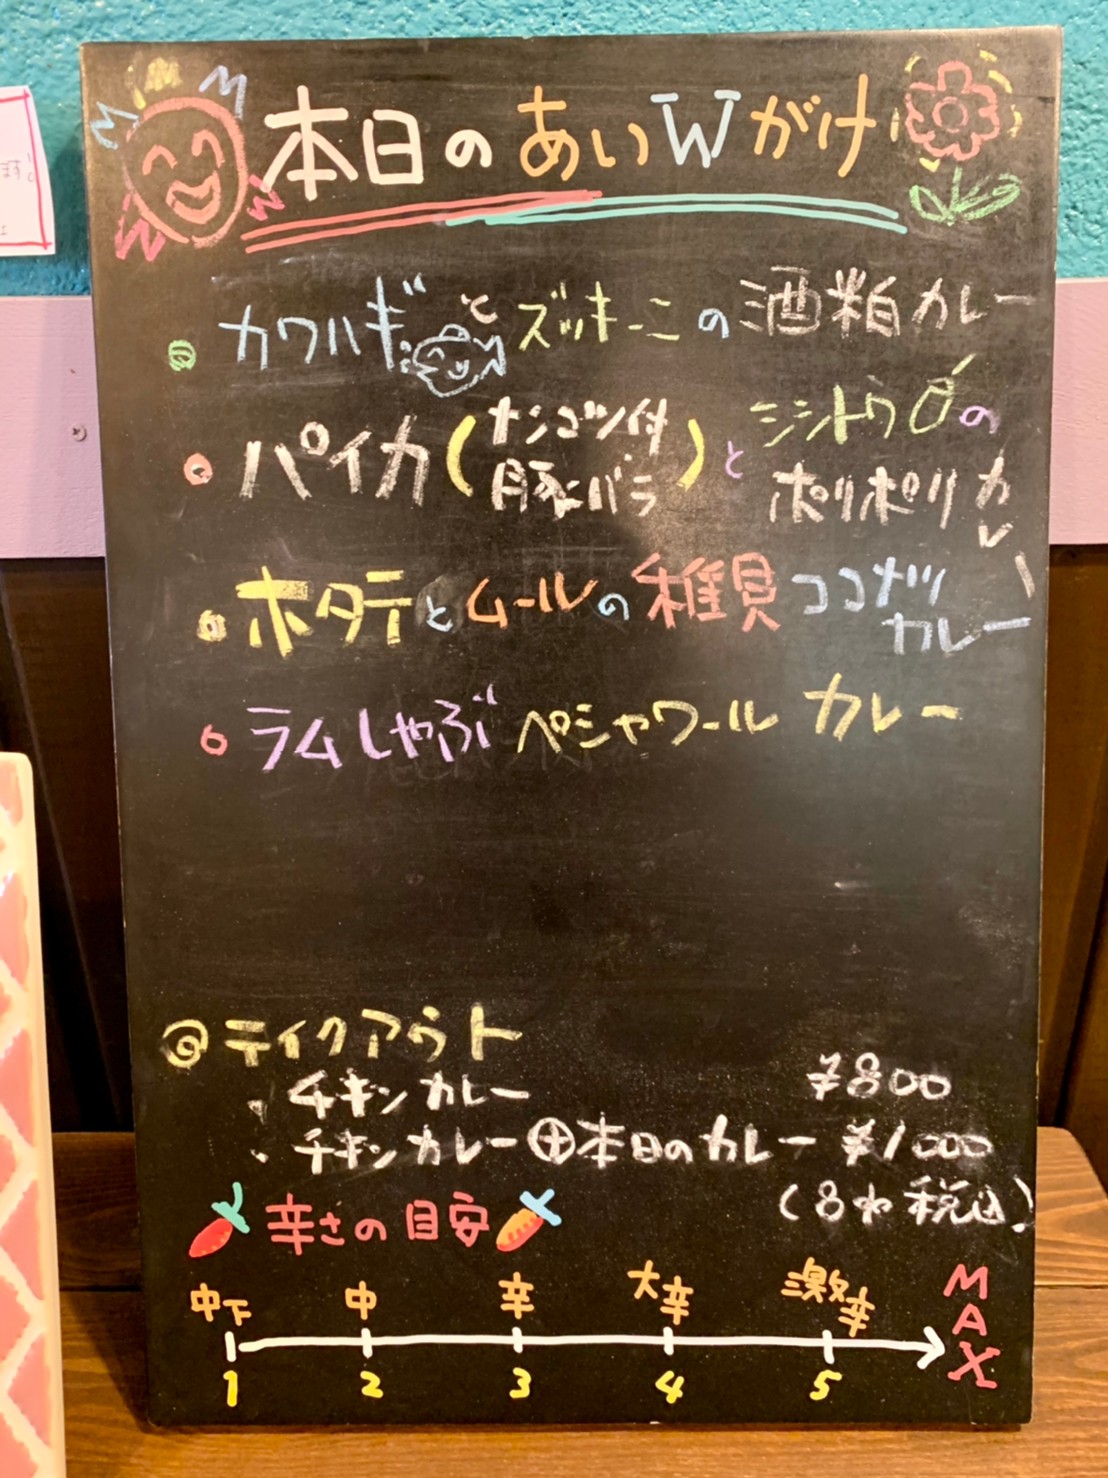 本日のあいWがけ
カワハギとズッキーニの酒粕カレー
パイカ(ナンコツ付豚バラ)とシシトウのポリポリカレー
ホタテとムールの稚貝ココナッツカレー
ラムしゃぶペシャワールカレー
◎テイクアウト
・チキンカレー ¥800
・チキンカレー⊕本日のカレー ¥1000
(8% 税込)
辛さの目安
中下 中 辛 大辛 激辛 MAX
1 2 3 4 5
ます!。